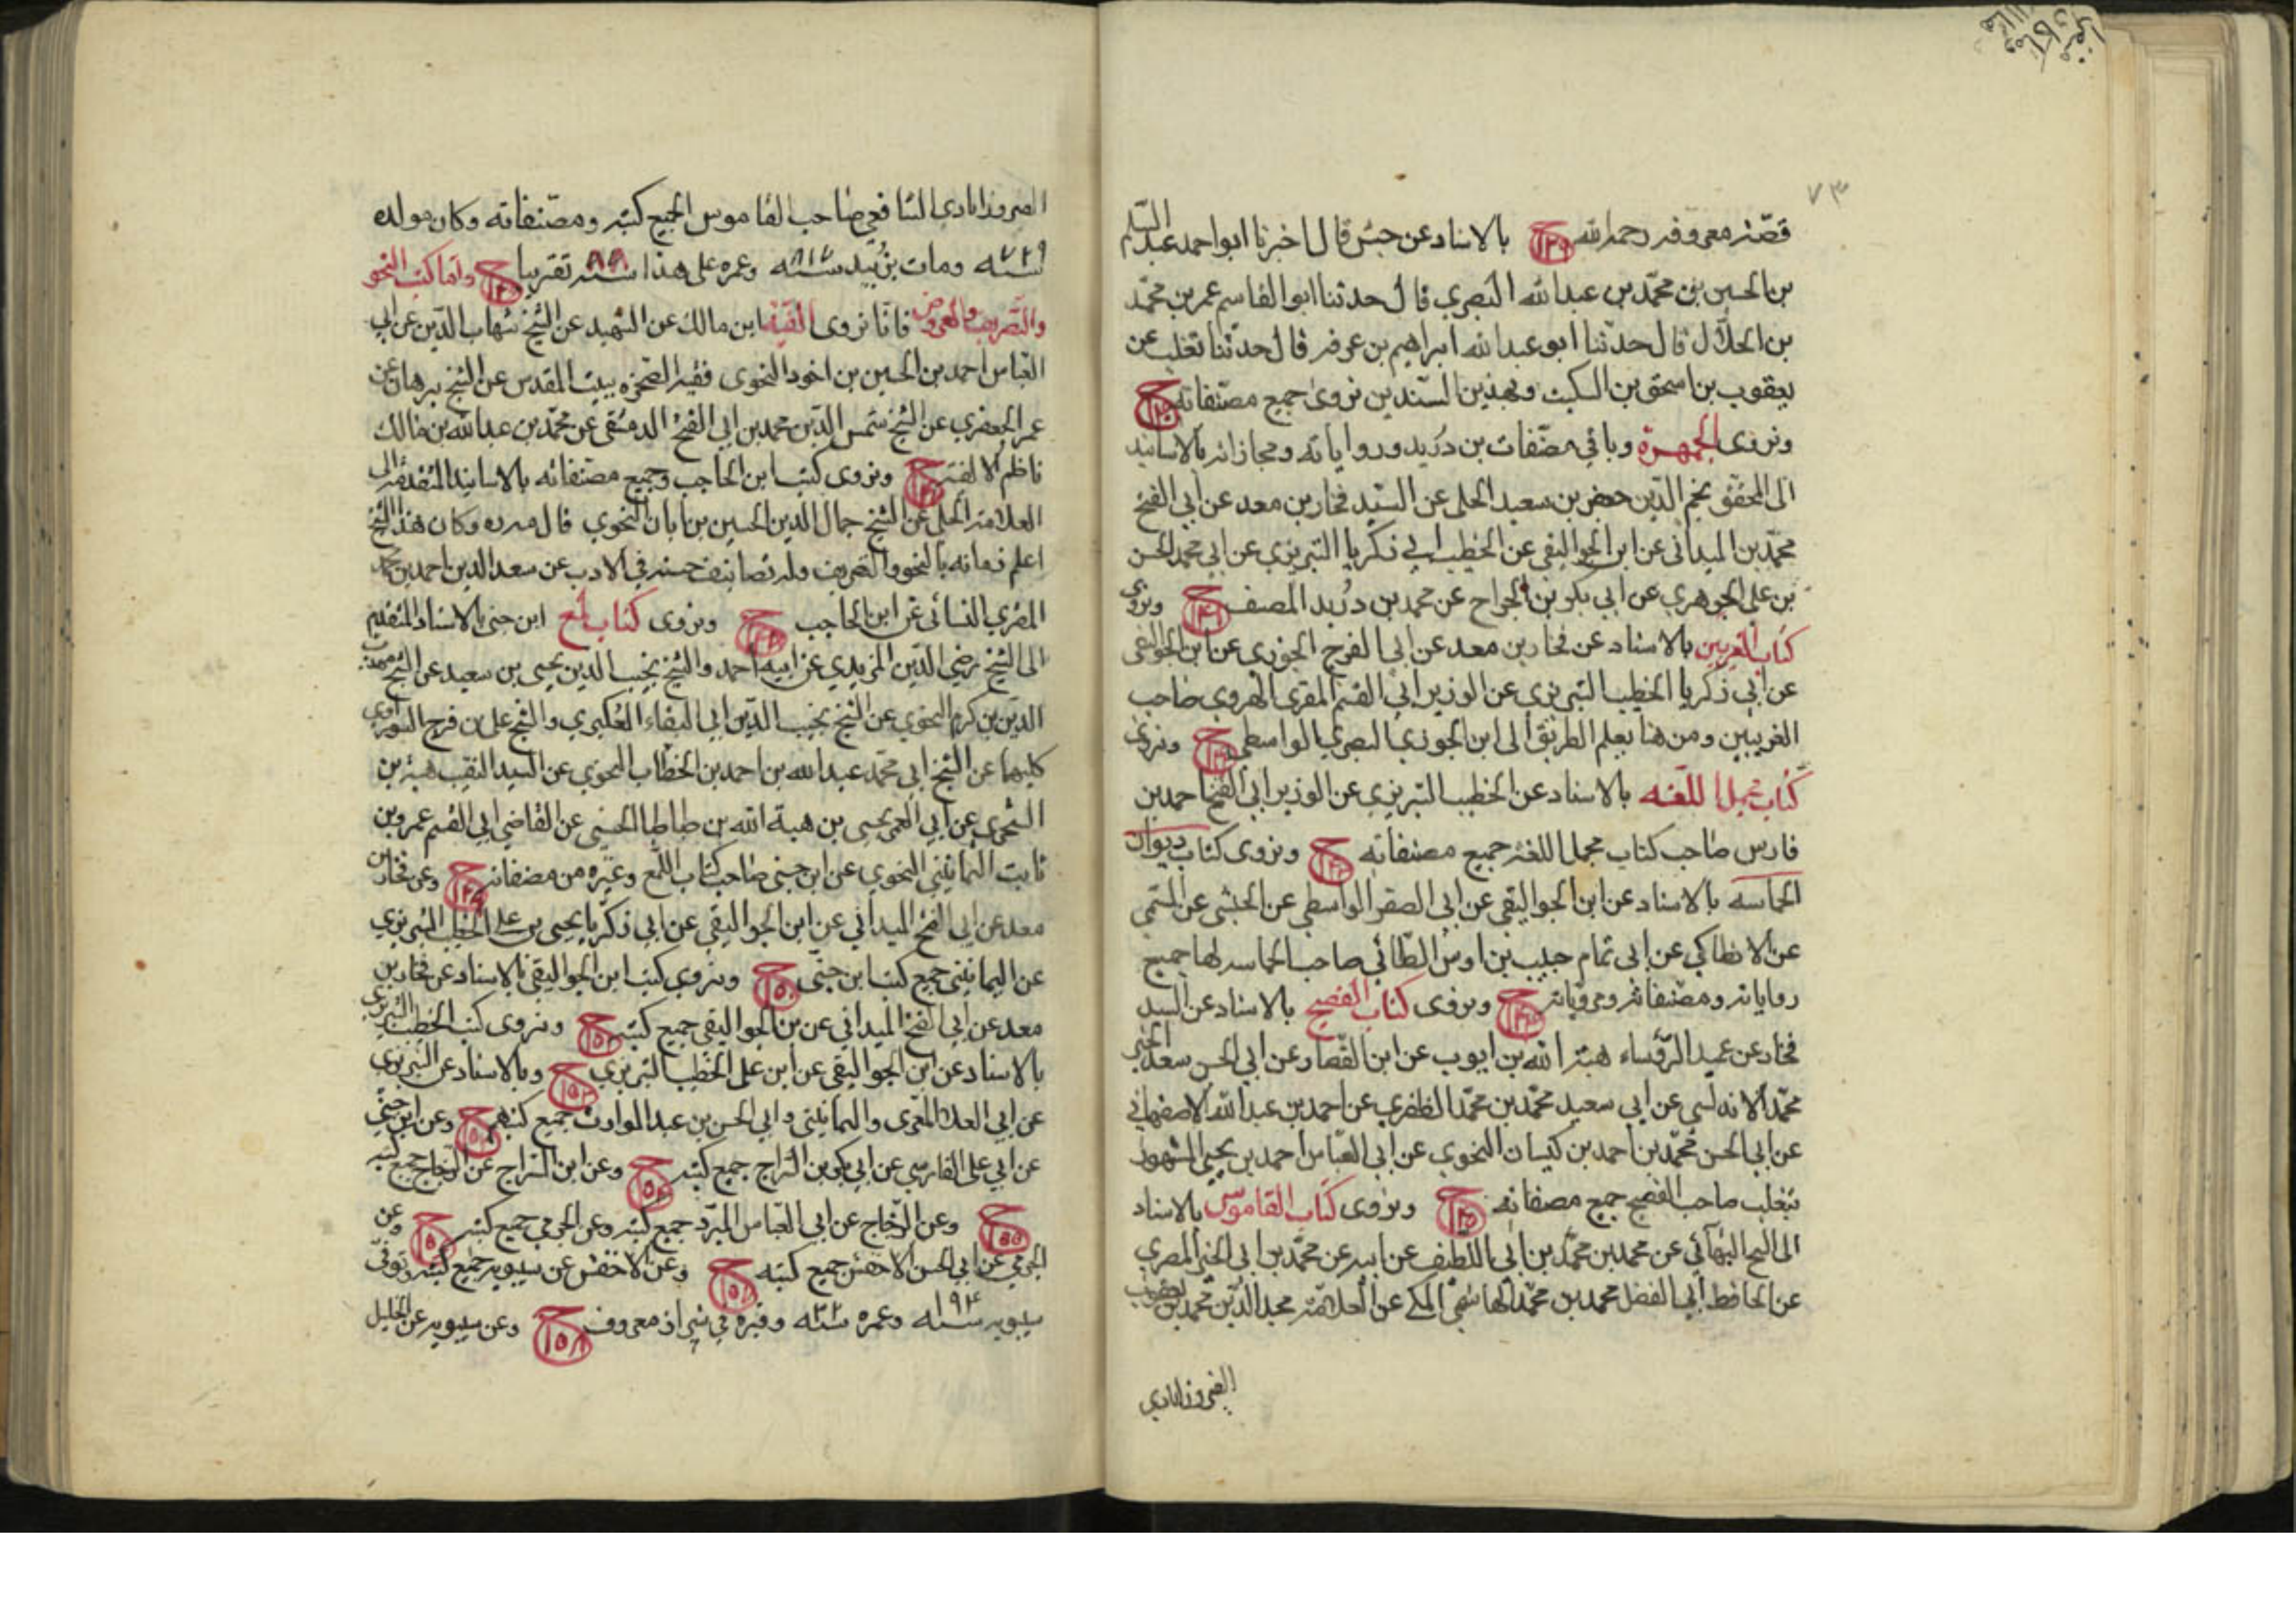 ٧٣
قصّته معروفه رحمه الله ح ١٣٩ بالاسناد عن حبش قال اخبرنا ابو احمد عبد السّلم
بن الحسين بن محمّد بن عبد الله البصري قال حدثنا ابو القاسم عمر بن محمّد
بن الخلّال قال حدّثنا ابو عبد الله ابراهيم بن عرفه قال حدّثنا ثعلب عن
يعقوب بن اسحق بن السكيت وبهذين السّندين نروى جميع مصنّفاته ح
ونروى الجمهرة وباقي مصنّفات بن دُرَيد ورواياته ومجازاته بالاسانيد
الى المحقّق نجم الدّين جعفر بن سعيد الحلى عن السّيد فخار بن معد عن ابي الفتح
محمّد بن الميدانى عن ابن الجواليقى عن الخطيب ابي زكريا التبريزى عن ابي محمد الحسن
بن على الجوهري عن ابي بكر بن الجراح عن محمد بن دُرَيد المصنف ح ونروى
كتاب الغريبين بالاسناد عن فخار بن معد عن ابي الفرج الجوزى عن ابن الجواليقى
عن ابي زكريا الخطيب التبريزى عن الوزير ابي القسم المقرى الهروى صاحب
الغريبين ومن هنا يعلم الطريق الى ابن الجوزى البصري الواسطى ح ونروى
كتاب مجمل اللغه بالاسناد عن الخطيب التبريزى عن الوزير ابي الفتح احمد بن
فارس صاحب كتاب مجمل اللغة جميع مصنفاته ح ونروى كتاب ديوان
الحماسه بالاسناد عن ابن الجواليقى عن ابي الصقر الواسطى عن الحبشى عن التنمى
عن الانطاكي عن ابى تمام حبيب بن اوس الطّائي صاحب الحماسه لها جميع
رواياته ومصنفاته ومروياته ح ونروى كتاب الفصيح بالاسناد عن السيد
فخار عن عميد الرّؤساء هبة الله بن ايوب عن ابن القصار عن ابي الحسن سعد الخير
محمّد الاندلسى عن ابي سعيد محمّد بن محمّد المظفرى عن احمد بن عبد الله الاصفهانى
عن ابي الحسن محمّد بن احمد بن كيسان النحوى عن ابي العبّاس احمد بن يحيى المشهور
بثعلب صاحب الفصيح جميع مصنفاته ح ونروى كتاب القاموس بالاسناد
الى الشيخ البهآئى عن محمد بن محمّد بن ابي اللطيف عن ابيه عن محمّد بن ابي الخير المصرى
عن الحافظ ابي الفضل محمد بن محمّد الهاشمي المكى عن العلامة مجد الدّين محمّد بن يعقوب
الفيروزابادي
الفيروزابادي الشافعي صاحب القاموس الجميع كتبه ومصّنفاته وكان مولده
سنة ٧٢٩ ومات بزَبيد سنة ٨١٧ وعمره على هذا سنة ٨٨ تقريبا ح واما كتب النحو
والتّصريف والعروض فانّا نروى الفيّة ابن مالك عن الشهيد عن الشيخ شهاب الدّين عن ابي
العبّاس احمد بن الحسين بن اخود النحوى فقيه الصّخره ببيت المقدس عن الشيخ برهان عن
عمر الجعفرى عن الشيخ شمس الدّين محمد بن ابي الفتح الدمشقى عن محمّد بن عبد الله بن مالك
ناظم الالفيّة ح ونروى كتب ابن الحاجب وجميع مصنفاته بالاسانيد المتقدّمة الى
العلامة الحلى عن الشيخ جمال الدين الحسين بن ابان النحوي قال وكان هذا الشيخ
اعلم زمانه بالنحو والتصريف وله تصانيف حسنه في الادب عن سعد الدين احمد بن محمد
المقرى النسائى عن ابن الحاجب ح ونروى كتاب لمع ابن جنى بالاسناد المتقدّم
الى الشيخ رضى الدّين المزيدى عن ابيه احمد والشيخ نجيب الدين يحيى بن سعيد عن الشيخ مهذب
الدّين بن كرم النحوى عن الشيخ نجيب الدّين ابي البقاء العُكبرى والشيخ على بن فرج السوراوى
كليهما عن الشيخ ابي محمّد عبد الله بن احمد بن الخشّاب النحوى عن السيد النقيب هبة بن
الشجرى عن ابي المعمر يحيى بن هبة الله بن طباطبا الحسنى عن القاضى ابي القسم عمر بن
ثابت الثمانينى النحوى عن ابن جنى صاحب كتاب اللّمع وغيره من مصنفاته ح وعن فخار بن
معد عن ابي الفتح الميدانى عن ابن الجواليقى عن ابي زكريّا يحيى بن على الخطيب التبريزى
عن الثمانينى جميع كتب ابن جنّى ح ونروى كتب ابن الجواليقى بالاسناد عن فخار بن
معد عن ابي الفتح الميدانى عن بن الجواليقى جميع كتبه ح ونروى كتب الخطيب التبريزى
بالاسناد عن ابن الجواليقى عن ابن على الخطيب التبريزى ح وبالاسناد عن التبريزى
عن ابي العلا المعرّى والثمانينى وابي الحسن بن عبد الوارث جميع كتبهم ح وعن ابن جنّى
عن ابي على الفارسي عن ابي بكر بن السّراج جميع كتبه ح وعن ابن السّراج عن الزجاج جميع كتبه
ح ١٥٥ وعن الزجاج عن ابي العبّاس المبرّد جميع كتبه وعن الجرمى جميع كتبه ح وعن
الجرمى عن ابي الحسن الاخفش جميع كتبه ح وعن الاخفش عن سيبويه جميع كتبه وتوفى
سيبويه سنة ١٩٤ وعمره سنة ٣٢ وقبره في شيراز معروف ح ١٥٨ وعن سيبويه عن الخليل